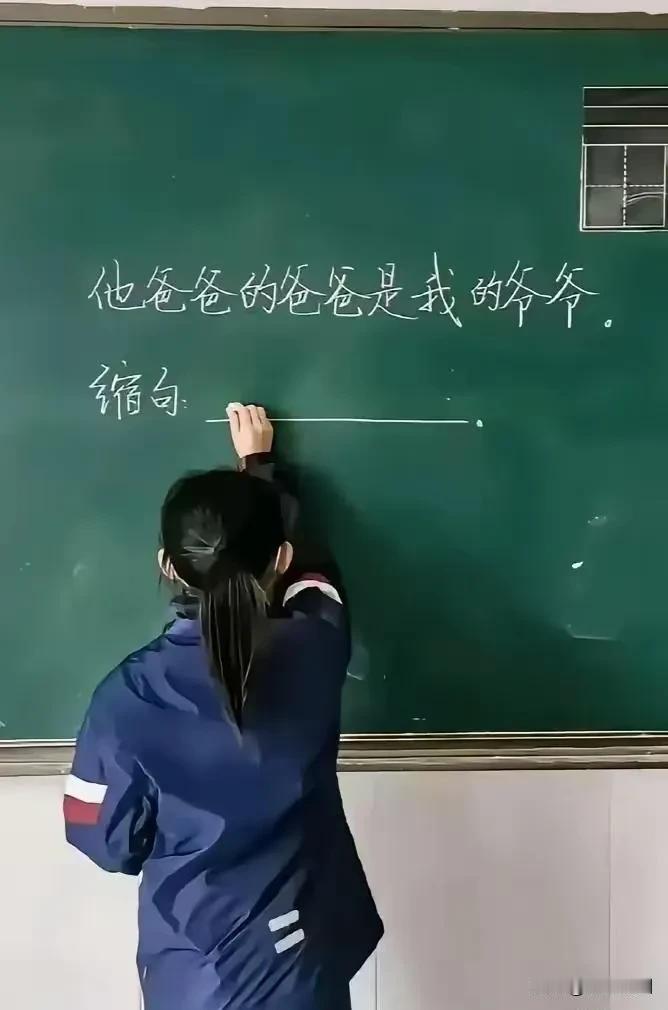 他爸爸的爸爸是我的爷爷。
缩句: ________.